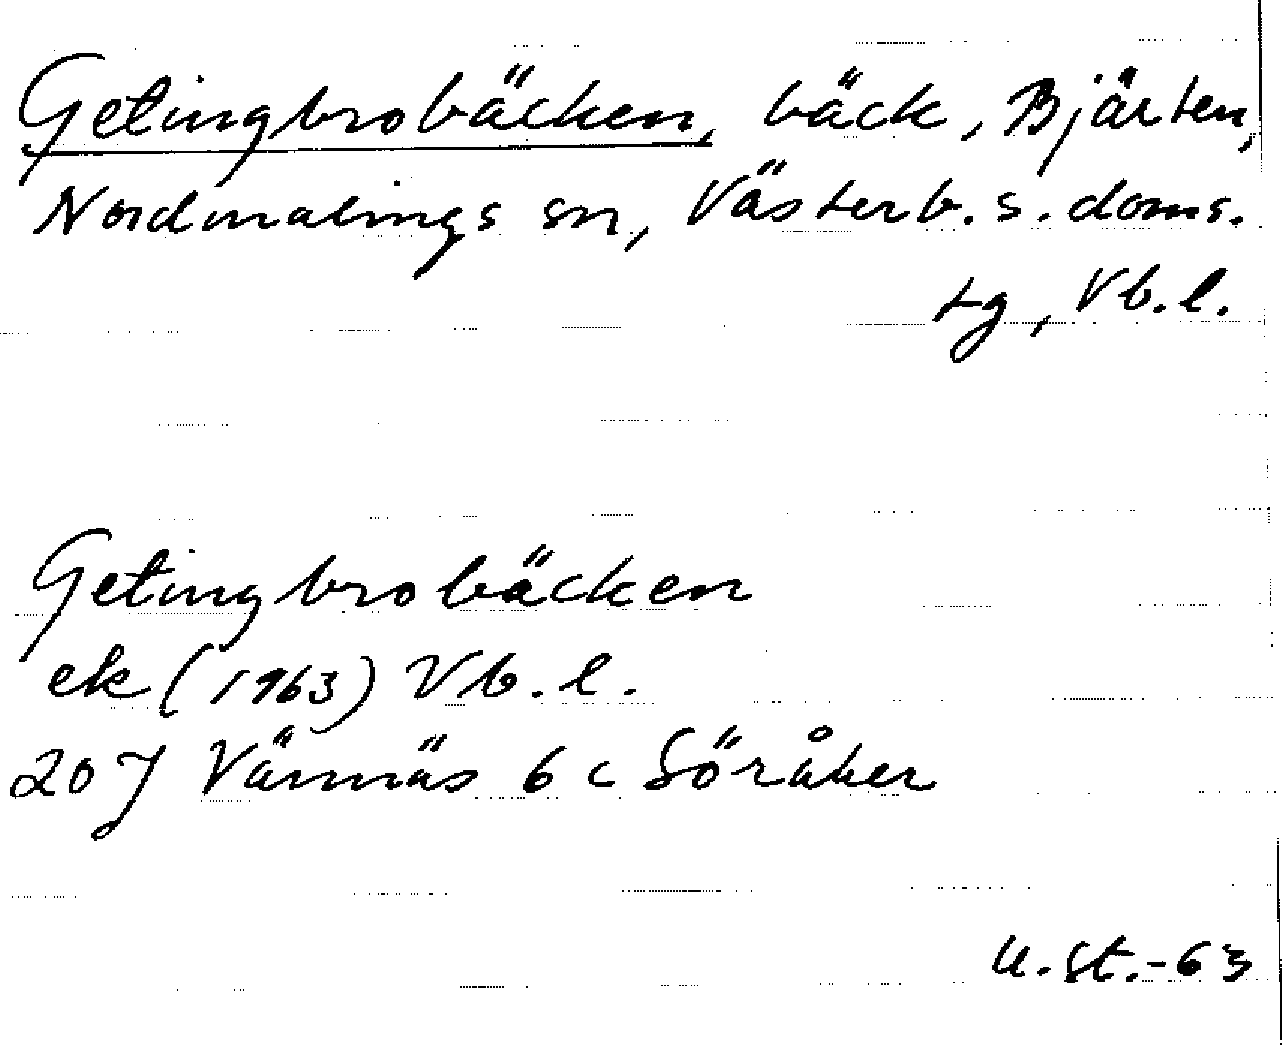 Getingbrobäcken, bäck, Bjärten,
Nordmalings sn, Västerb. s. doms.
tg, Vb. l.
Getingbrobäcken
ek (1963) Vb. l.
20J Vännäs 6 c Söråker
U. St. -63